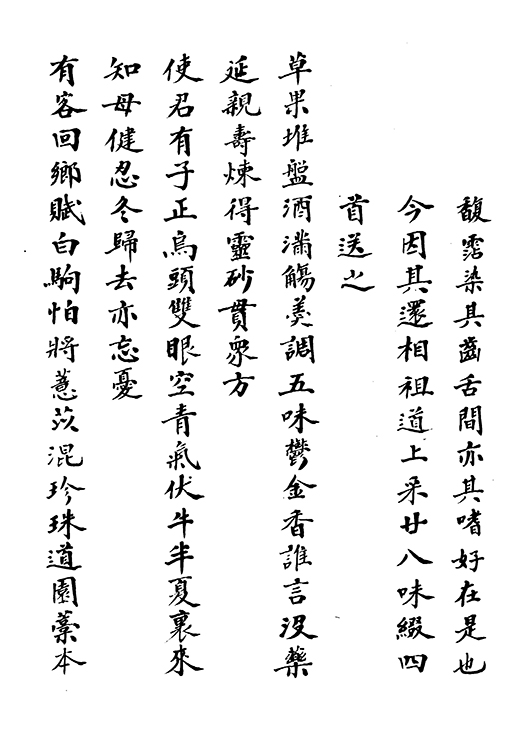 馥霑染其齒舌間亦其嗜好在是也
今因其還相祖道上采廿八味綴四
首送之
草果堆盤酒滿觴羹調五味鬱金香誰言没藥
延親壽煉得靈砂貫衆方
使君有子正烏頭雙眼空青氣伏牛半夏裏來
知母健忍冬歸去亦忘憂
有客回鄉賦白駒怕將薏苡混珍珠道園藁本